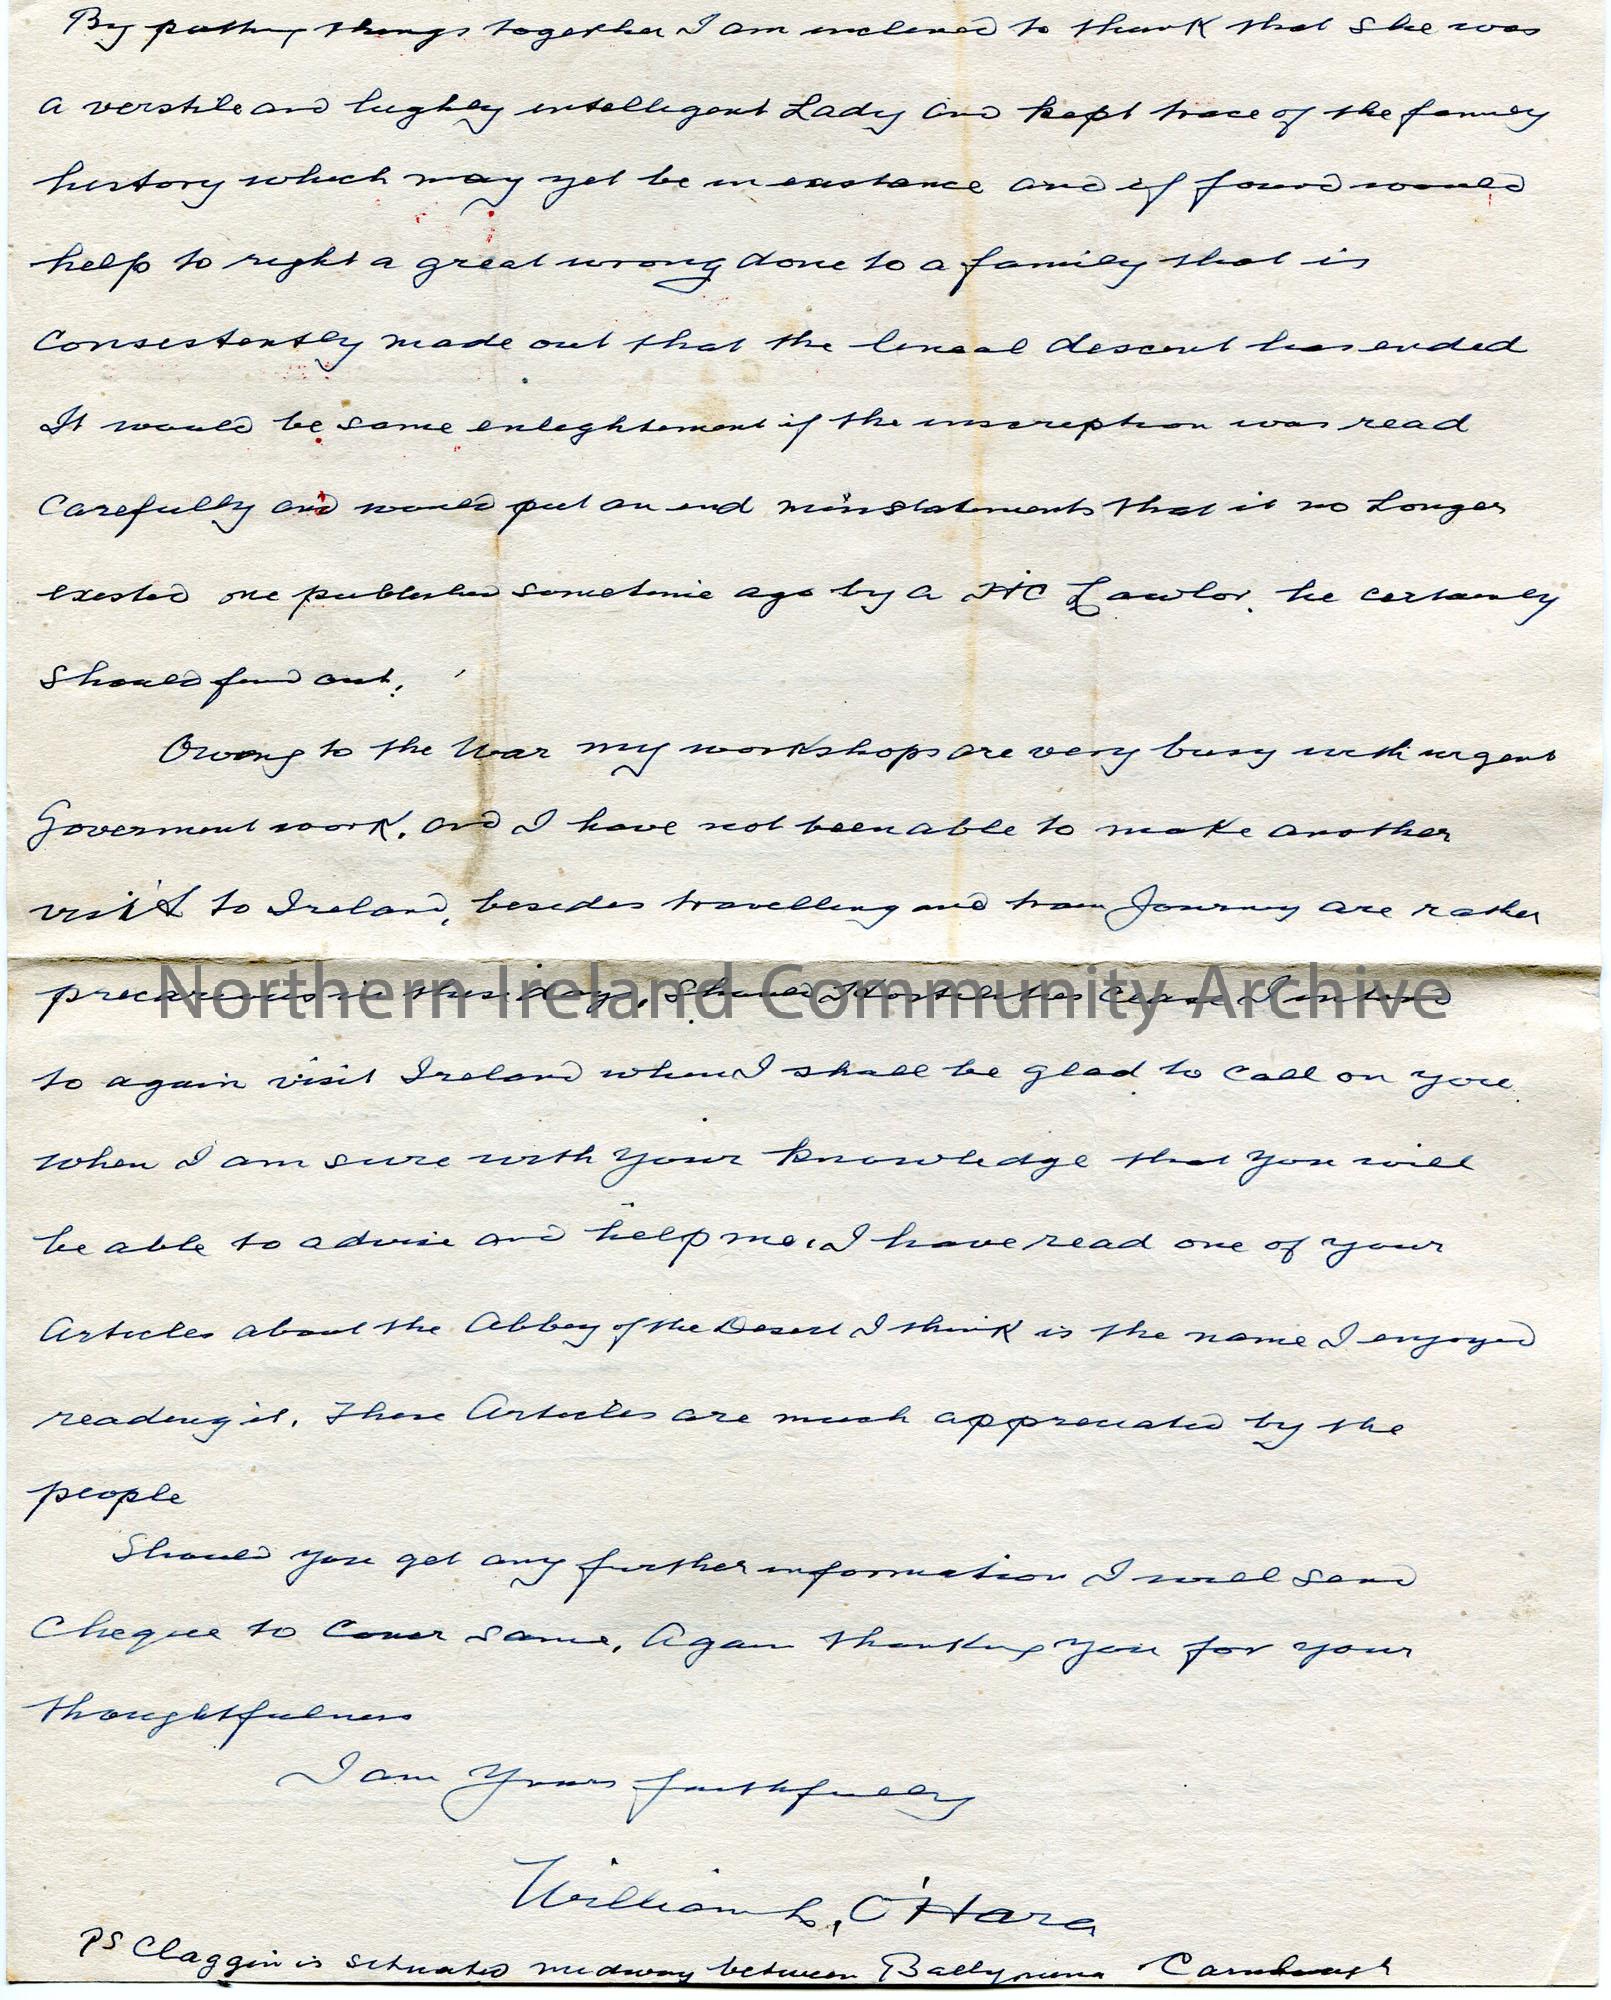 By putting things together I am inclined to think that She was
a verstile and highley intelligent Lady and kept trace of the family
history which may yet be in existance and if found would
help to right a great wrong done to a family that is
Consistently made out that the lineal descent has ended
It would be some enlightement if the inscreption was read
Carefully and would put an end misstatements that it no Longer
existed one published sometime ago by a HC Lawlor. he certainly
should find out.
Owing to the War my workshops are very busy with urgent
Goverment work. and I have not been able to make another
visit to Ireland, besides travelling and train Journey are rather
precarious in these days, Should Hostilities Cease I intend
to again visit Ireland when I shall be glad to call on you.
when I am sure with your knowledge that you will
be able to advise and help me. I have read one of your
Articles about the Abbey of the Desert I think is the name I enjoyed
reading it. These Articles are much appreciated by the
people
Should you get any further information I will send
Cheque to Cover same. Again thanking you for your
thoughtfulness
I am Yours faithfully
William L. O'Hara
PS Claggin is situated midway between Ballymena
Northern Ireland Community Archive